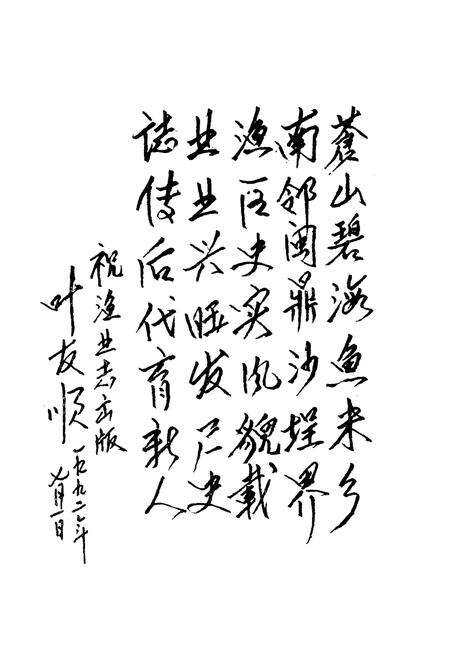 蒼山碧海鱼米乡
南邻闽鼎沙埕界
渔区史实风貌载
业业兴旺发展史
誌传后代育新人
祝渔业志出版
叶友顺
一九九二年
七月一日